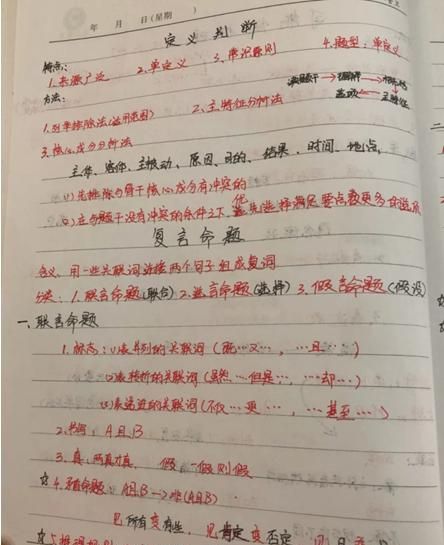 年 月 日(星期 )
定义判断
特点:
1.来源广泛 2.单定义 3.常识原则 4.题型:单定义
方法:
读题干→理解→
选项←主特征
1.列举排除法(适用范围) 2.主特征分析法
3.核心成分分析法
主体、客体、主被动、原因、目的、结果、时间、地点,
(1)先排除与骨干核心成分有冲突的
(2)在与题干没有冲突的条件之下,优先选择满足要点数更多的选项
复言命题
含义:用一些关联词连接两个句子组成复词
分类:1.联言命题(联合)2.选言命题(选择)3.假言命题(假设)
一、联言命题
1.标志:(1)表并列的关联词(既…又…,…且…)
(2)表转折的关联词(虽然…但是…,…却…)
(3)表递进的关联词(不仅…更…,…甚至…)
2.书写:A且B
3.真:两真才真 假:一假则假
☆4.矛盾命题:A且B→非(A且B)
见所有变有些,见肯定变否定
☆5.推理规则